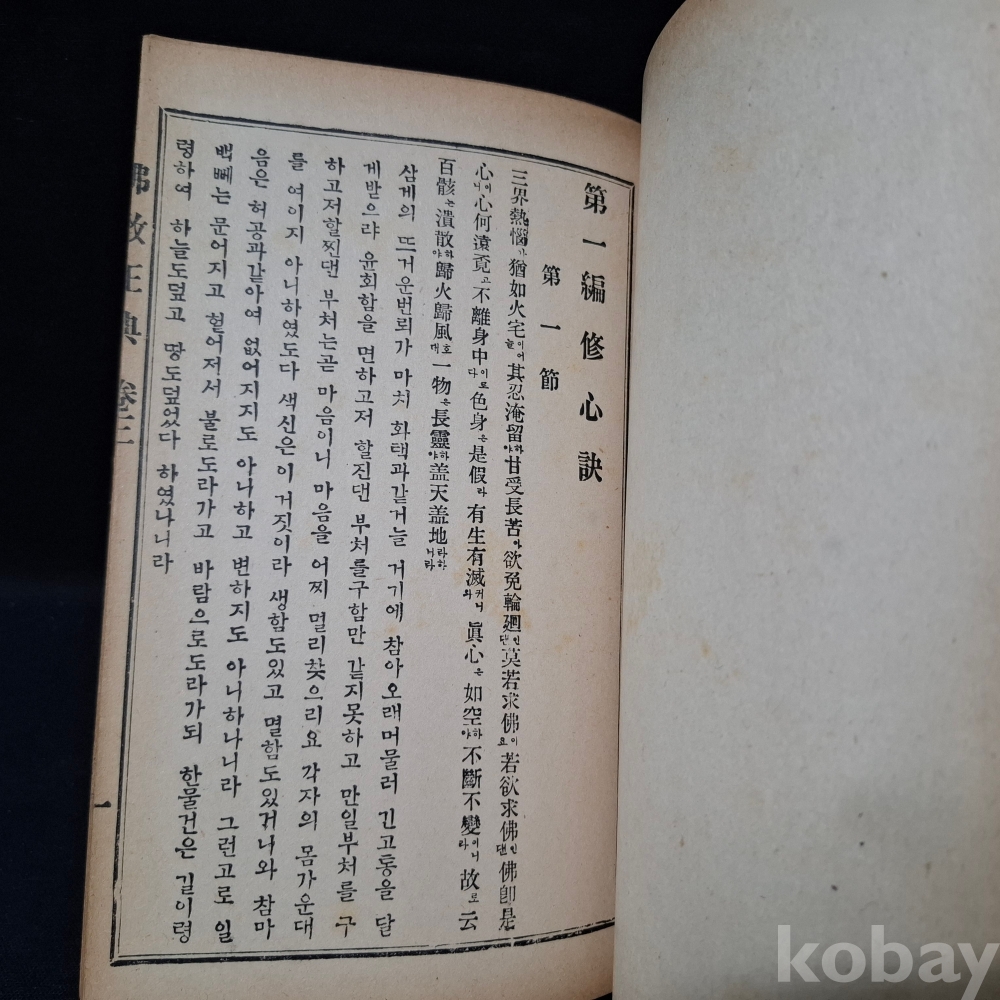 第一編 修心訣
第一節
三界熱惱가 猶如火宅이어늘 其忍淹留하야 甘受長苦아 欲免輪廻인댄 莫若求佛이요 若欲求佛인댄 佛卽是
心이니 心何遠覔고 不離身中이로다 色身은 是假라 有生有滅커니와 眞心은 如空하야 不斷不變이니라 故로 云
百骸는 潰散하야 歸火歸風호대 一物은 長靈하야 盖天盖地라하니라
삼계의 뜨거운번뢰가 마치 화택과같거늘 거기에 참아오래머물러 긴고통을 달
게받으랴 윤회함을 면하고저 할진댄 부처를구함만 같지못하고 만일부처를 구
하고저할찐댄 부처는곧 마음이니 마음을 어찌 멀리찾으리요 각자의 몸가운대
를 여이지 아니하였도다 색신은이 거짓이라 생함도있고 멸함도있거니와 참마
음은 허공과같아여 없어지지도 아니하고 변하지도 아니하나니라 그런고로 일
백뼈는 문어지고 헐어저서 불로도라가고 바람으로도라가되 한물건은 길이령
령하여 하늘도덮고 땅도덮었다 하였나니라
佛敎正典 卷三
一
kobay